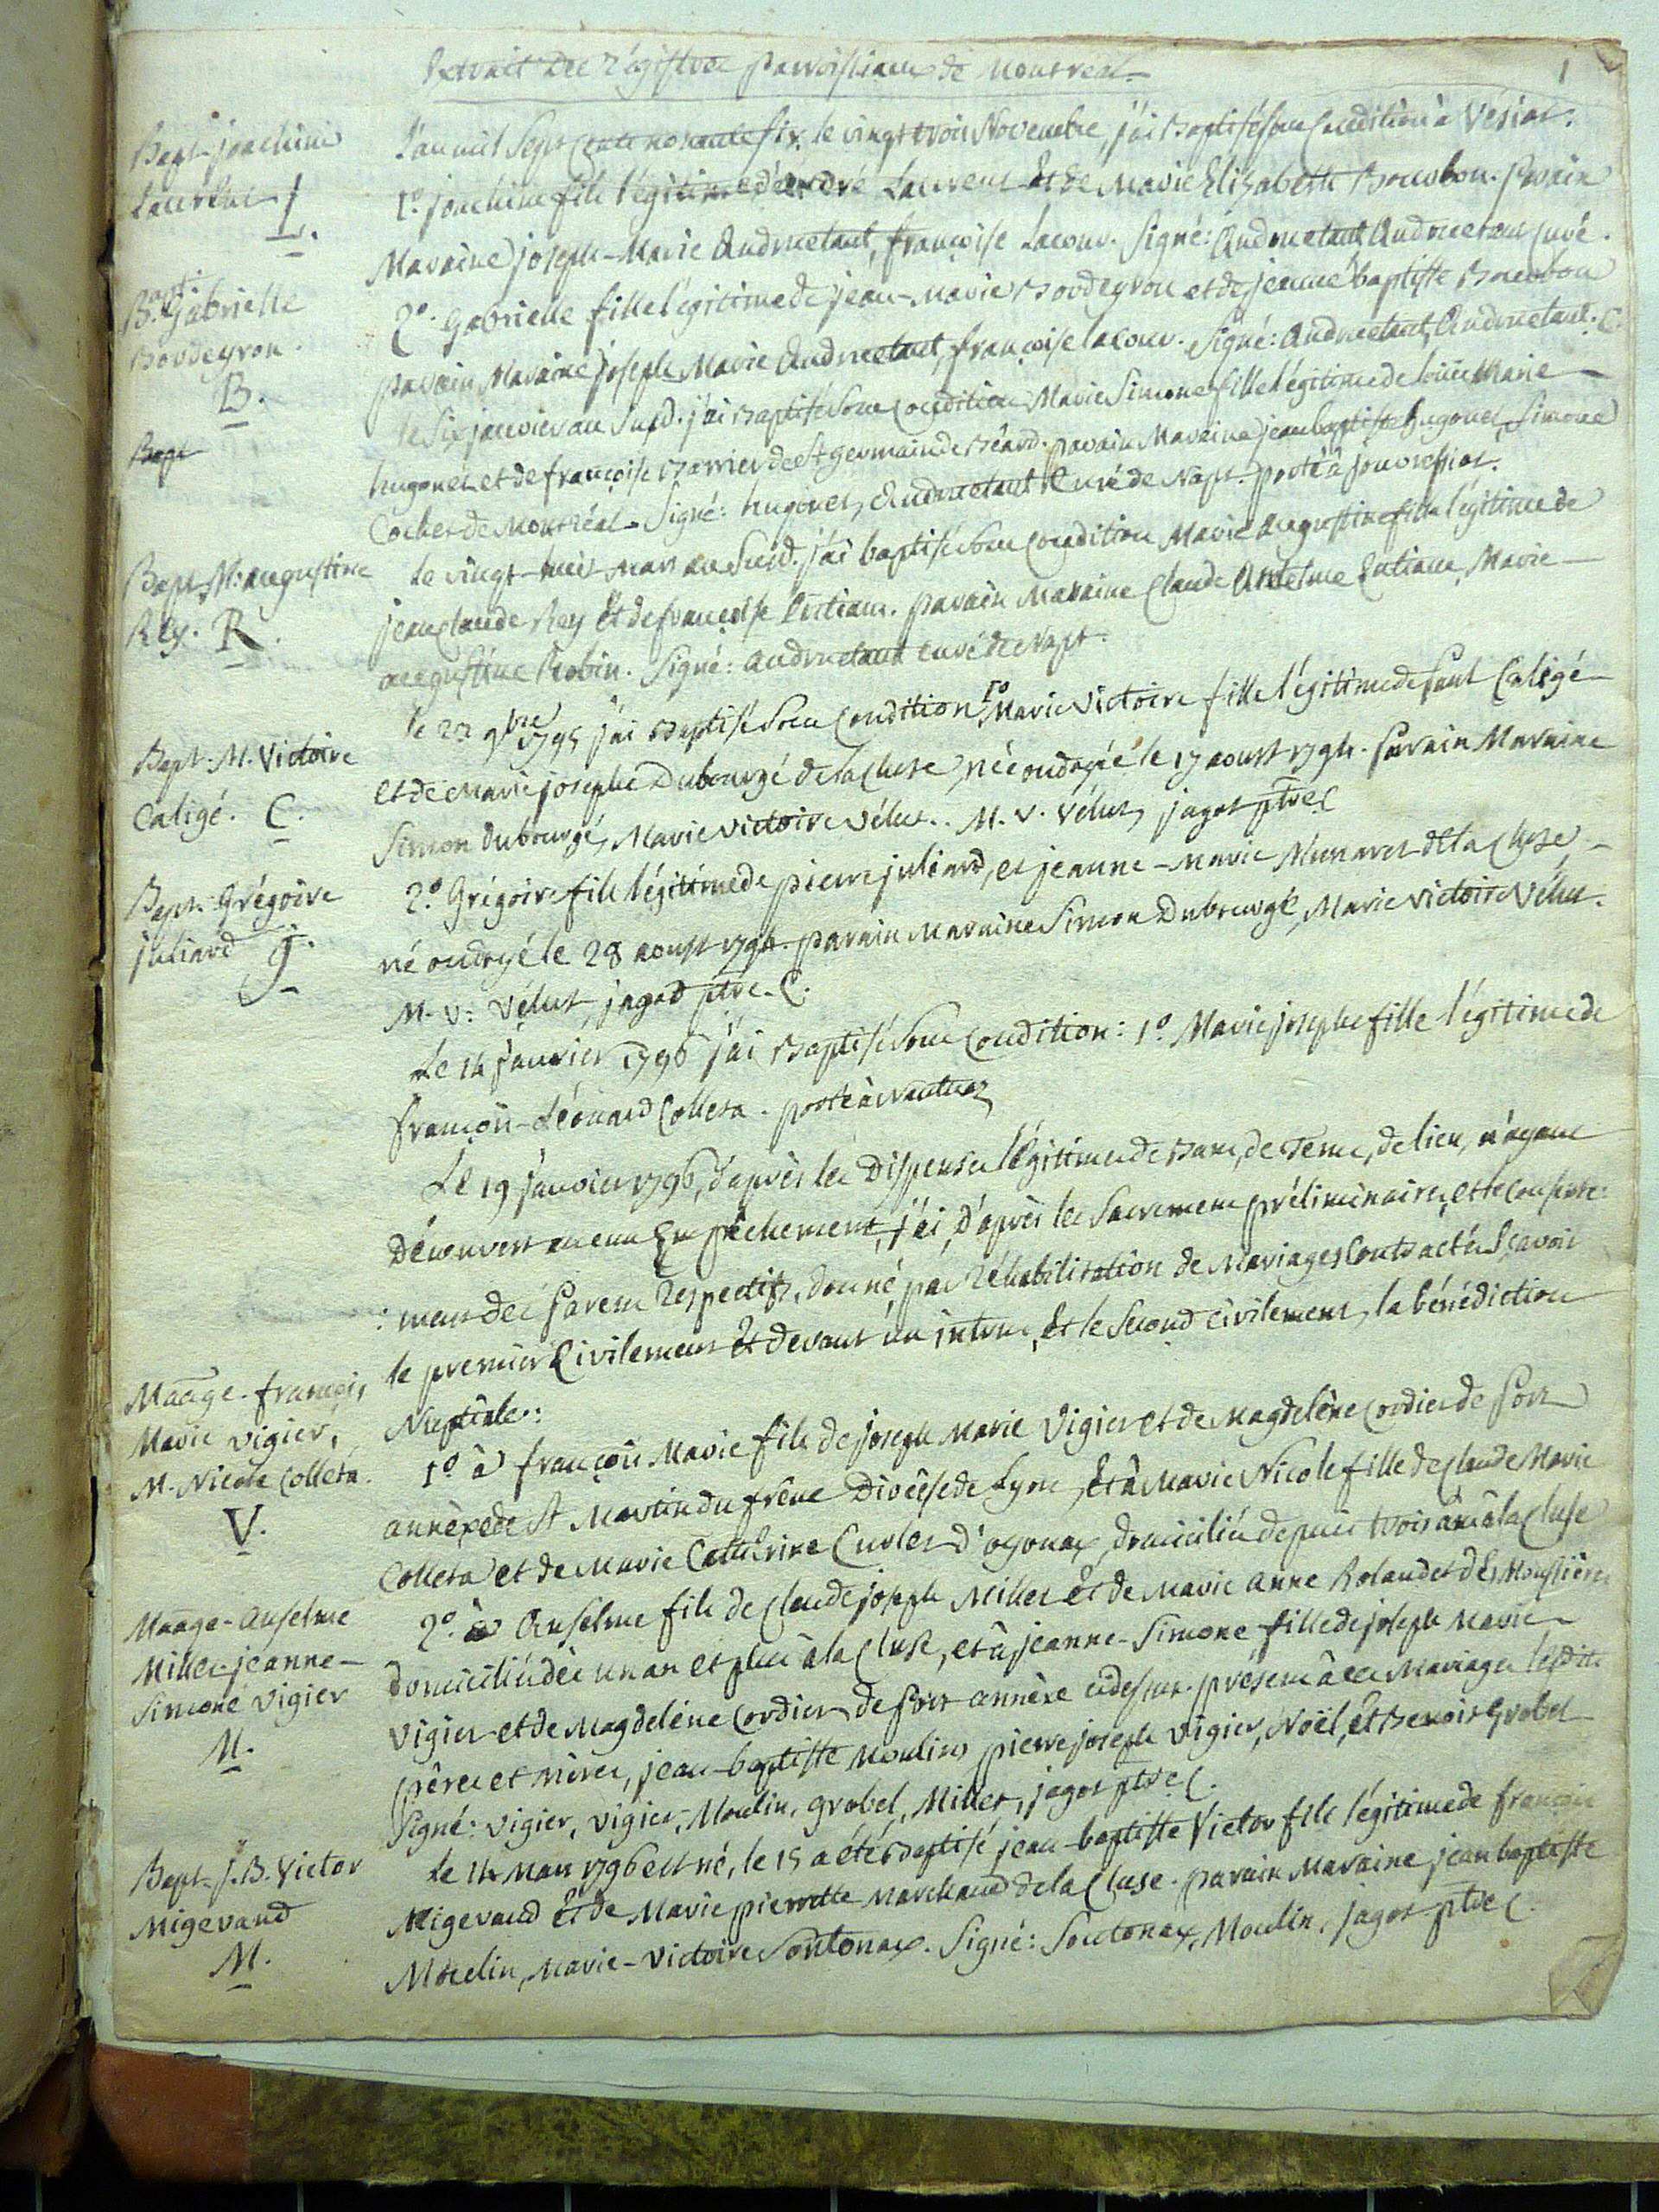 Extrait des Régistres parroissiaux de Montréal
1
Bapt. joachim
Laurent
L.
L'an mil Sept Cents nonante six, le vingt trois Novembre, j'ai Baptisé sous Condition à Vésiat:
1º. joachim fils légitime d'andré Laurent et de Marie Elisabeth Bourbon. parain
Maraine joseph-Marie Andruetant, françoise Lacour. Signé: Andruetant Andruetant Curé.
Bapt. Gabrielle
Bordeyron.
B.
2º. Gabrielle fille légitime de jean-Marie Bordeyron et de jeanne baptiste Bourbon
parain Maraine joseph Marie Andruetant, françoise Lacour. Signé: Andruetant, Andruetant. C.
Bapt
le six janvier an Susd. j'ai Baptisé sous Condition Marie Simone fille légitime de louis Marie
hugonet et de françoise Barrier de St germain de Béard. parain Maraine jean baptiste hugonet, Simone
Cochet de Montréal. Signé: hugonet, Andruetant Curé de Napt. porté à
Bapt. M. augustine
Rey. R.
le vingt-huit mars an Susd. j'ai baptisé sous Condition Marie augustine fille légitime de
jean Claude Rey et de françoise Cutiaux. parain Maraine Claude Antelme Cutiaux, Marie
augustine Robin. Signé: andruetant curé de Napt.
Bapt. M. Victoire
Caligé. C.
le 22 9bre 1795 j'ai Baptisé sous Condition 1º Marie Victoire fille légitime de Paul Caligé
et de Marie josephe Dubourgé de la Cluse, née ondoyée le 17 aoust 1794. Parain Maraine
Simon Dubourgé, Marie Victoire Vélut. M. V. Vélut, jagot ptre C
Bapt. Grégoire
juliard j.
2º. Grégoire fils légitime de pierre juliard, et jeanne-marie Munaret de la Cluse,
né ondoyé le 28 aoust 1794. parain Maraine Simon Dubourgé, Marie Victoire Vélut.
M. V: Vélut, jagod ptre. C.
Le 14 janvier 1796 j'ai Baptisé sous Condition: 1º. Marie josephe fille légitime de
françois-Léonard Colleta. porté à Nantua
Le 19 janvier 1796, d'après les Dispenses légitimes de Bans, de tems, de lieu, n'ayant
Découvert aucun Empêchement, j'ai, d'après les Sacremens préliminaires, et le Consente:
:ment des Parens respectifs, donné, par Réhabilitation de Mariages Contractés, Sçavoir
le premier Civilement et devant un intrus, et le Second Civilement, la bénédiction
Nuptiale:
Maage. françois
Marie Vigier,
M. Nicole Colleta.
V.
1º à françois Marie fils de joseph Marie Vigier et de Magdelêne Cordier de Port
annèxe de St Martin du frêne Diocèse de Lyon, et à Marie Nicole fille de Claude Marie
Colleta et de Marie Catherine Curlet d'oyonax, domiciliés depuis trois ans à la Cluse
Maage-Anselme
Millet-jeanne-
Simone Vigier
M.
2º. à Anselme fils de Claude joseph Millet et de Marie anne Rolandet des Moussières
domiciliés dès un an et plus à la Cluse, et à jeanne-Simone fille de joseph Marie
Vigier et de Magdelêne Cordier de Port annèxe cidessus. présens à ces Mariages lesdits
pères et mères, jean-baptiste Moulin, pierre joseph Vigier, Noël, et Benoit Grobel
Signé: Vigier, Vigier, Moulin, grobel, Millet, jagot ptre C.
Bapt. J.B. Victor
Migévand
M.
le 14 Mars 1796 est né, le 15 a été Baptisé jean-baptiste Victor fils légitime de françois
Migevand et de Marie pierrette Marchand de la Cluse. parain Maraine jean baptiste
Moulin, Marie-Victoire Sontonax. Signé: Sontonax, Moulin, jagot ptre C.